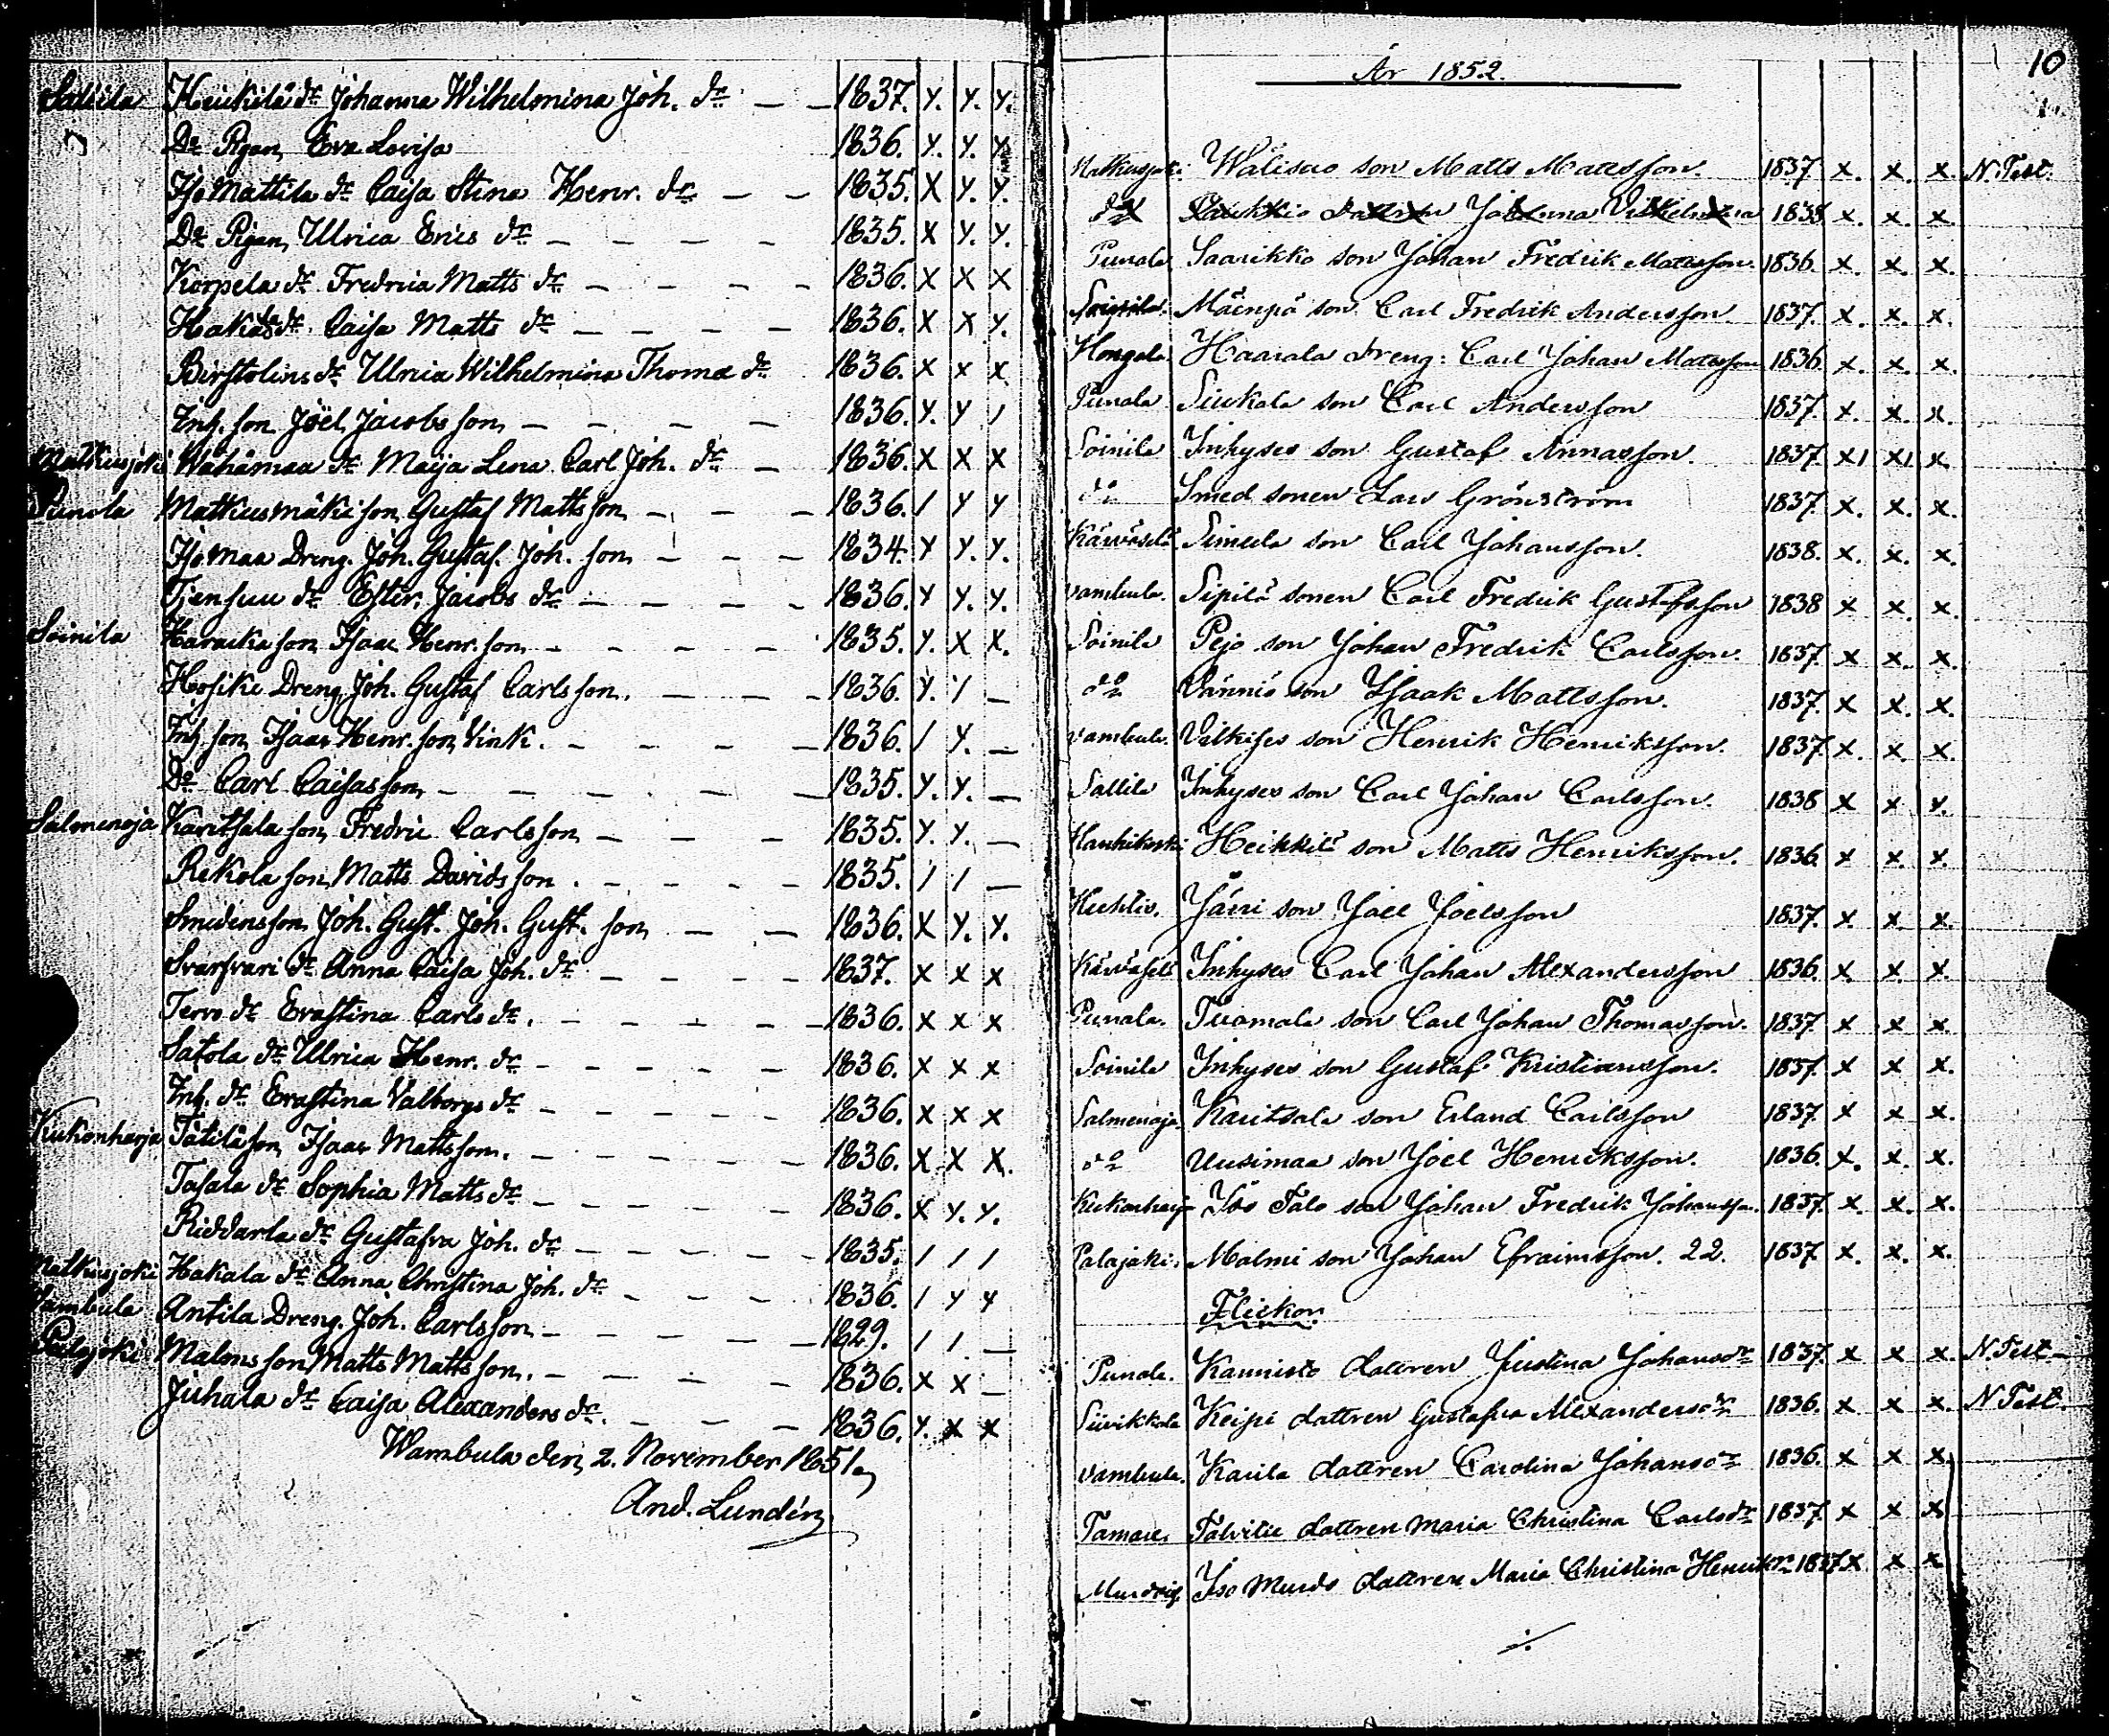 Sallila Heickilä dr Johanna Wilhelmina Joh. dr — — 1837. y. y. y.
Do Pigan, Eva Lovisa 1836. y. y. y.
Iso Mattila dr Caisa Stina Henr. dr — — 1835. x y. y.
Do Pigan, Ulrica Erics dr — — — — 1835. x y. y.
Korpela dr Fredrica Matts dr — — — — 1836. x x x
Hakala dr Caisa Matts dr — — — — 1836. x x y.
Birstolins dr Ulrica Wilhelmina Thomæ dr 1836. x x x
Inh. son Joël Jacobsson — — — — 1836. y. y /
Matkusjoki Wähämaa dr Maija Lena Carl Joh. dr — 1836. x x x
Punola Matkusmäki son, Gustaf Mattsson — — — 1836. / y y
Iso maa Dreng. Joh. Gustaf. Joh. son — — — 1834. y y. y.
Tjensuu dr Ester. Jacobs dr — — — — 1836. y y. y.
Soinila Haraika son, Isaac Henr. son — — — — 1835. y. x x.
Hosike Dreng, Joh. Gustaf Carlsson. — — — 1836. y. / —
Inh son, Isaac Henr. son, Vink. — — — — 1836. / y. —
Do Carl Caisasson — — — — — 1835. y. y. —
Salmenoja Karitsala son, Fredric Carlsson — — — 1835. y. y. —
Rekola son, Matts Davidsson — — — — 1835. / / —
Smedensson Joh. Gust. Joh. Gust. son — — 1836. x y. y.
Svarfvari dr Anna Caisa Joh. dr — — — — 1837. x x x
Tervo dr Evastina Carls dr. — — — — — 1836. x x x
Satola dr Ulrica Henr. dr — — — — — 1836. x x x
Inh. dr Evastina Valborgs dr — — — — — 1836. x x x
Kuckonharja Tätilä son, Isaac Mattsson. — — — — — 1836. x x x.
Tasala dr Sophia Matts dr — — — — — 1836. x y. y.
Riddarla dr Gustafva Joh. dr — — — — — 1835. / / /
Matkusjoki Hakala dr Anna Christina Joh. dr — — — 1836. / y y
Vambula Antila Dreng. Joh. Carlsson — — — — — 1829. / / —
Palojoki Malms son Matts Mattsson. — — — — 1836. x x —
Juhala dr Caisa Alexanders dr. — — — 1836. y. x x
Wambula den, 2. November 1851.
And. Lundén
År 1852. 10
Matkusjoki Wälisuo son Matts Mattsson. 1837 x. x. x. N. Test.
do dattren Johanna Vilhelmina 1838 x. x. x.
Punola Saarikko son Johan Fredrik Mattsson. 1836. x. x. x.
Soinila Mäenpä son Carl Fredrik Andersson. 1837. x. x. x.
Hongola Haarala dreng: Carl Johan Mattsson 1836. x. x. x.
Punola Siukola son Carl Andersson 1837. x. x. x.
Soinila Inhyses son Gustaf Annasson. 1837. x/ x/ x.
do Smed sonen Lars Grönström 1837. x. x. x.
Simula son Carl Johansson. 1838. x. x. x.
Vambula. Sipilä sonen Carl Fredrik Gustafsson 1838 x x. x.
Soinila Pejo son Johan Fredrik Carlsson. 1837. x x. x.
do Vänniö son Isaak Mattsson. 1837. x x. x.
Vambula. Välkises son Henrik Henriksson. 1837. x. x. x.
Sallila Inhyses son Carl Johan Carlsson. 1838 x x x.
Hanhikoski Heikkilä son Matts Henriksson. 1836. x x. x.
Huhtis. Järri son Joel Joelsson 1837. x. x. x.
Inhyses Carl Johan Alexandersson 1836. x. x. x.
Punola. Tuomola son Carl Johan Thomasson. 1837 x x. x.
Soinila Inhyses son Gustaf Kristiansson. 1837. x x x.
Salmenoja Karitsala son Erland Carlsson 1837 x x x.
do Uusimaa son Joel Henriksson. 1836. x. x. x.
Kukonharja Iso Talo son Johan Fredrik Johansson. 1837. x. x. x.
Palojoki. Malmi son Johan Efraimsson. 22. 1837 x. x. x.
Flickor
Punola. Kannisto dattren Justina Johansdr 1837. x x x. N. Test
Siivikkala Keipi dattren Gustafva Alexandersdr 1836. x x x. N Test.
Vambula. Karila dattren Carolina Johansdr 1836. x x x
Tamare. Talvitie dattren Maria Christina Carlsdr 1837 x x x
Iso Murdo dattren Maria Christina Henriksdr 1837. x x x